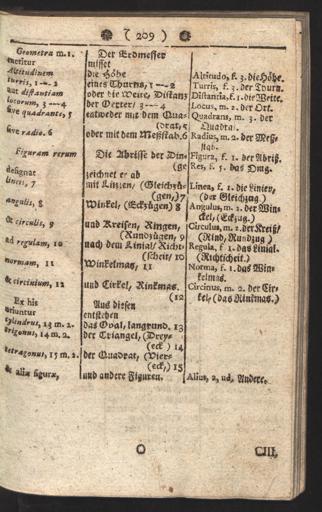 ( 209 )
Geometra m. 1.
metitur
Altitudinem
turris, 1--2
aut distantiam
locorum, 3---4
sive quadrante, 5
sive radio. 6
Figuram rerum
designat
lineis, 7
angulis, 8
& circulis, 9
ad regulam, 10
normam, 11
& circinum, 12
Ex his
oriuntur
cylindrus, 13 m. 2.
trigonus, 14 m. 2.
tetragonus, 15 m. 2.
& aliæ figuræ,
Der Erdmesser
misset
die Höhe
eines Thurns, 1--2
oder die Weite, Distanz
der Oerter/ 3---4
entweder mit dem Qua-
drat, 5
oder mit dem Meßstab. 6
Die Abrisse der Din-
ge
zeichnet er ab
mit Linien, (Gleichzü-
gen,) 7
Winkel, (Eckzügen) 8
und Kreisen, Ringen,
(Rundzügen, 9
nach dem Linial/ Richt-
(scheit/ 10
Winkelmas, 11
und Cirkel, Rinkmas.
(12
Aus diesen
entstehen
das Oval, langrund. 13
der Triangel, (Drey-
(eck) 14
der Quadrat, (Vier-
(eck,) 15
und andere Figuren.
Altitudo, f. 3. die Höhe.
Turris, f. 3. der Thurn.
Distantia, f. 1. die Weite.
Locus, m. 2. der Ort.
Quadrans, m. 3. der
Quadrat.
Radius, m. 2. der Meß-
stab.
Figura, f. 1. der Abriß.
Res, f. 5. das Ding.
Linea, f. 1. die Linien,
(der Gleichzug.)
Angulus, m. 2. der Win-
ckel, (Eckzug.)
Circulus, m. 2. der Kreiß/
(Rind, Rundzug)
Regula, f. 1. das Linial.
(Richtscheit.)
Norma, f. 1. das Win-
kelmas.
Circinus, m. 2. der Cir-
kel, (das Rinkmas.)
Alius, 2, ud, Andere.
O
CIII.